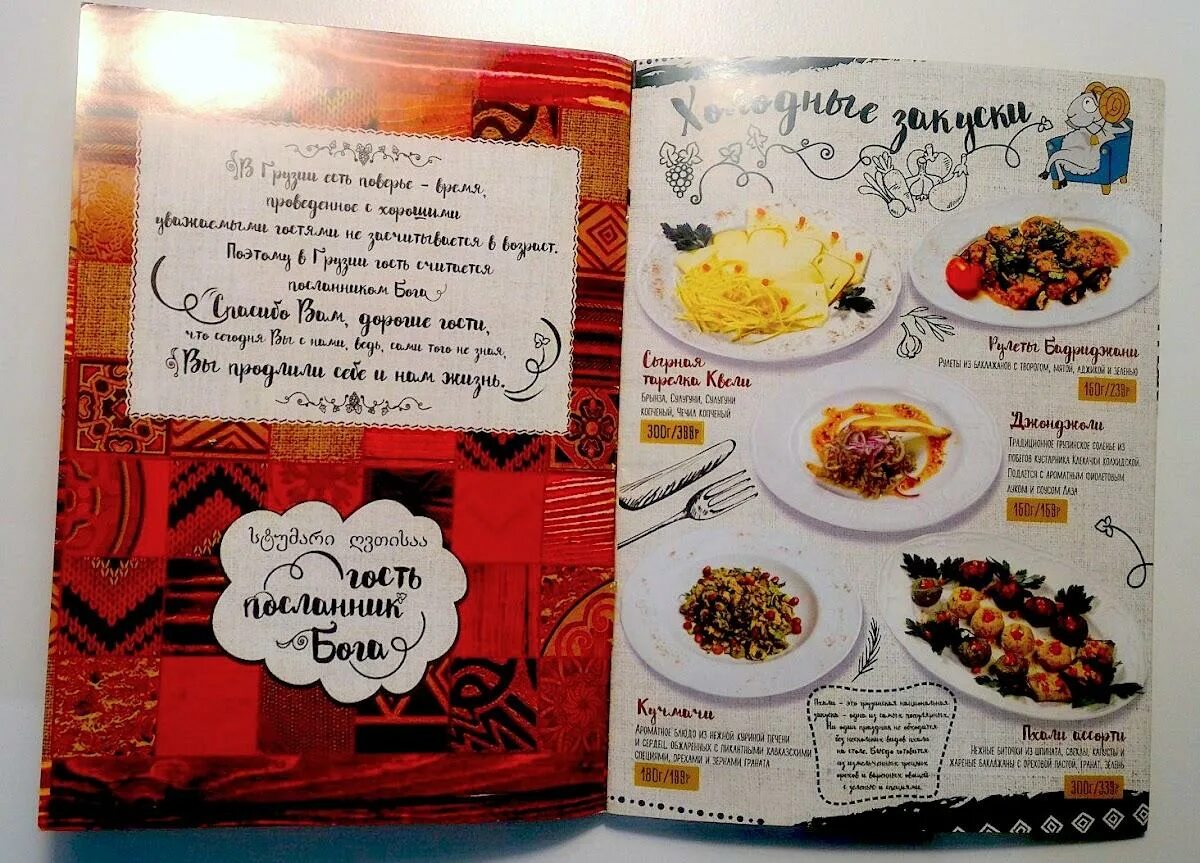 В Грузии есть поверье – время,
проведенное с хорошими
уважаемыми гостями не засчитывается в возраст.
Поэтому в Грузии гость считается
посланником Бога
Спасибо Вам, дорогие гости,
что сегодня Вы с нами, ведь, сами того не зная,
Вы продлили себе и нам жизнь.
სტუმარი ღვთისაა
гость
посланник
Бога
Холодные закуски
Сырная
тарелка Квели
Брынза, Сулугуни, Сулугуни
копченый, Чечил копченый
300г/388р
Рулеты Бадриджани
Рулеты из баклажанов с творогом, мятой, аджикой и зеленью
160г/239р
Джонджоли
Традиционное грузинское соленье из
побегов кустарника Клекачки колхидской.
Подается с ароматным фиолетовым
луком и соусом Лаза
150г/159р
Кучмачи
Ароматное блюдо из нежной куриной печени
и сердец, обжаренных с пикантными кавказскими
специями, орехами и зернами граната
180г/199р
Пхали – это грузинская национальная
закуска – одна из самых популярных.
Ни один праздник не обходится
без нескольких видов пхали
на столе. Блюдо готовится
из измельченных грецких
орехов и варенных овощей
с зеленью и специями.
Пхали ассорти
Нежные биточки из шпината, свеклы, капусты и
жареные баклажаны с ореховой пастой, гранат, зелень
300г/339р